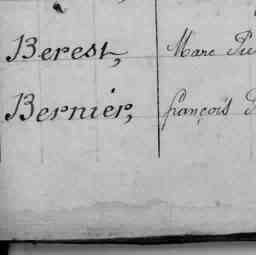 Berest, Marc
Bernier, françois